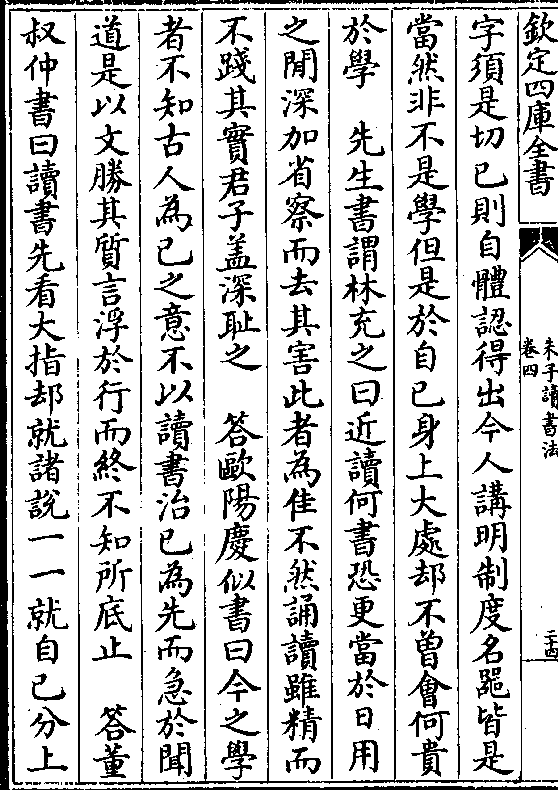 欽定四庫全書
朱子讀書法
卷四
二十四
字須是切已則自體認得出今人講明制度名噐皆是
當然非不是學但是於自已身上大處却不曽會何貴
於學　先生書謂林充之曰近讀何書恐更當於日用
之閒深加省察而去其害此者為佳不然誦讀雖精而
不踐其實君子盖深耻之　答歐陽慶似書曰今之學
者不知古人為已之意不以讀書治已為先而急於聞
道是以文勝其質言浮於行而終不知所底止　答董
叔仲書曰讀書先看大指却就諸說一一就自已分上